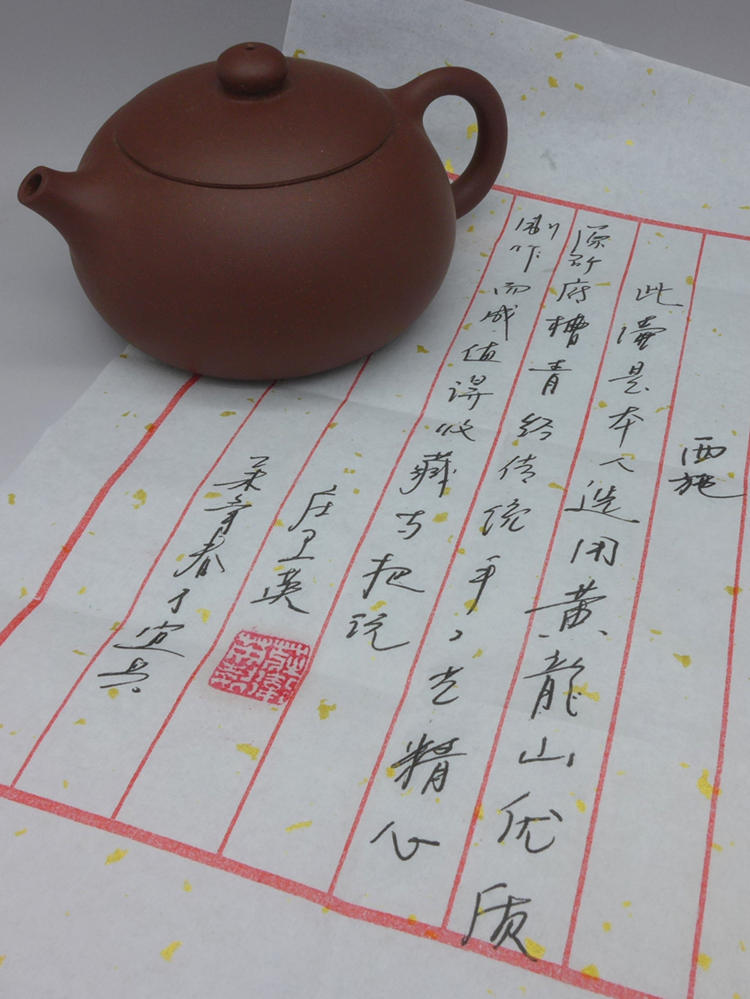 西施
此壺是本人选用黄龍山优质
原矿底槽青经传统手工艺精心
制作而成值得收藏与把玩
庄卫英
年春于宜兴